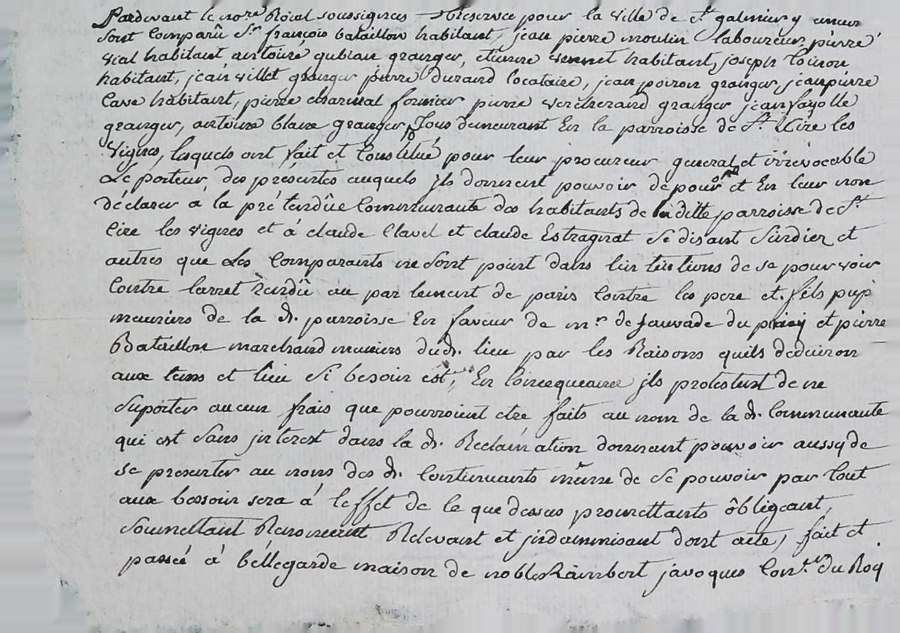 Pardevant le no.re Roial soussignes Reservé pour la ville de s.t galmier y
sont comparu s.r françois bataillon habitant, jean pierre moulin laboureur, pierre
vial habitant, antoine gubian granger, etienne habitant, joseph
habitant, jean villet granger pierre durand locataire, jean poiron granger, jean pierre
Cave habitant, pierre charmal fermier pierre vercherand granger jean fayolle
granger, antoine blanc granger, Tous demeurant En la parroisse de s.t Cire les
vignes, lesquels ont fait et Constitué pour leur procureur general et irrevocable
Le porteur des presentes auquels jls donnent pouvoir de pour et En leur nom
déclarer a la prétendüe Communauté des habitants de la ditte parroisse de s.t
Cire les vignes et a claude Clavel et claude Estragnat se disant sindics et
autres que Les Comparants ne sont point dans lintention de se pourvoir
Contre larret Rendü au parlement de paris Contre les pere et fils
meuniers de la d. parroisse En faveur de m.r de sauvade du et pierre
Bataillon marchand meuniers dud. lieu par les Raisons quils deduiron
aux tems et lieu si besoin est, En Consequance jls protestent de ne
suporter aucun frais que pourroient etre faits au nom de la d. Communauté
qui est sans jnterest dans la d. Reclamation donnent pouvoir aussy de
se presenter au noms des d. Constituants même de se pouvoir par tout
aux bessoin sera à leffet de ce que dessus promettants obligeant,
soumettant Renonceant Relevant et jndamnisant dont acte, fait et
passé à bellegarde maison de noble Rambert javoques Con.er du Roy